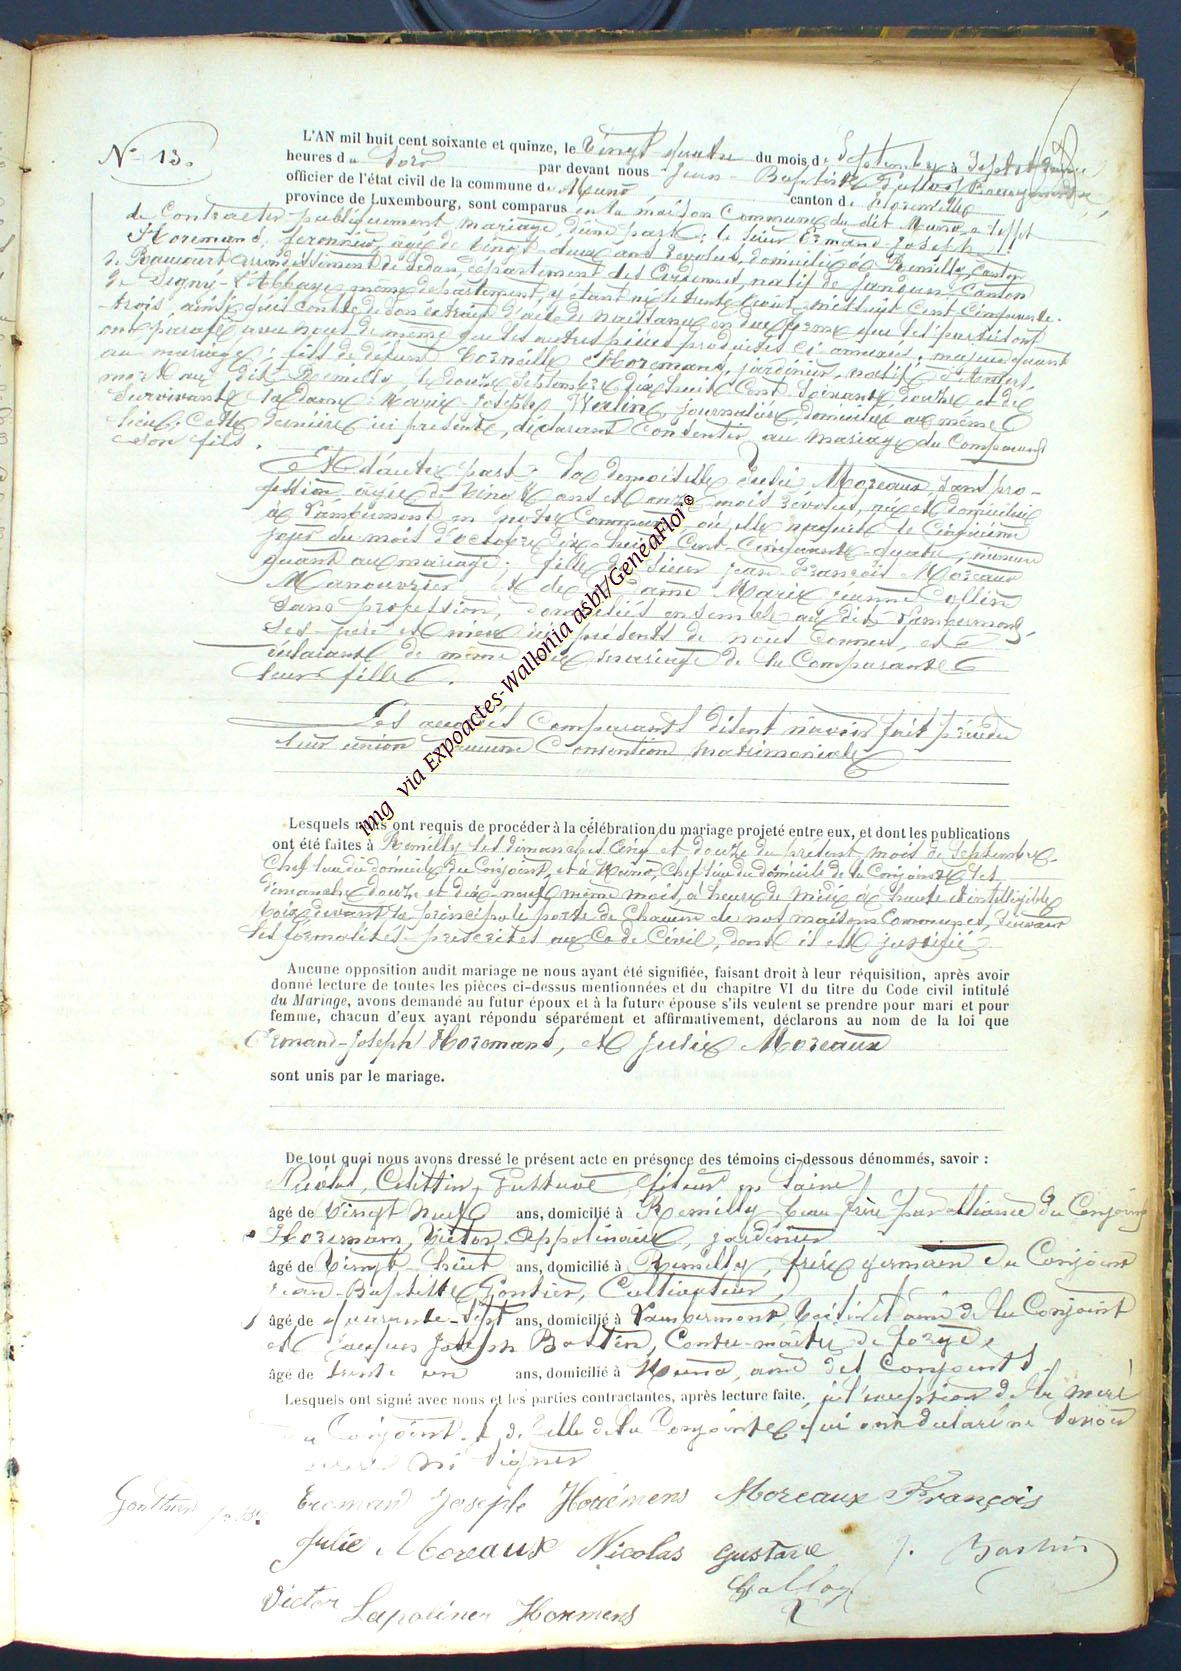 N° 13.
L'AN mil huit cent soixante et quinze, le Vingt quatre du mois de Septembre à Sept
heures du Soir par devant nous Jean-Baptiste Bourgmestre,
officier de l'état civil de la commune de Muno canton de Florenville
province de Luxembourg, sont comparus en la maison Commune du dit Muno, à l'effet
de Contracter publiquement mariage, d'une part: le Sieur Ermand Joseph
Horemans, âgé de Vingt deux ans révolus, domicilié à Remilly, Canton
de Raucourt arrondissement de Sedan, département des Ardennes, natif de Canton
de Signy-l'Abbaye même département, y étant né le trente Août mil huit Cent Cinquante-
trois, ainsi qu'il conste de son extrait d'acte de naissance en due forme que les parties ont
paraphé avec nous de même que les autres pièces produites ci annexées, majeur quant
au mariage; fils de défunt Corneille Horemans, jardinier, natif d'Anvers,
mort au dit Remilly, le douze Septembre dix huit Cent Soixante douze et de
Survivante la dame Marie-Joseph journalière, domiciliée au même
lieu; Cette dernière ici présente, déclarant Consentir au mariage du Comparant
Son fils.
Et d'autre part: la demoiselle Julie Moreaux, Sans pro-
fession, âgée de Vingt ans et onze mois révolus, née et domiciliée
à Lambermont en notre Commune où elle naquit le Cinquième
jour du mois d'octobre dix-huit Cent-Cinquante-quatre, mineure
quant au mariage; fille de Sieur Jean-François Moreaux
Manouvrier et de dame Marie Jeanne Collin
Sans profession, domiciliés ensemble au dit Lambermont,
Ses père et mère ici présents de nous Connus, et
de même au mariage de la Comparante
leur fille.
Les Comparants disent n'avoir fait précéder
leur union d'aucune Convention matrimoniale
Lesquels nous ont requis de procéder à la célébration du mariage projeté entre eux, et dont les publications
ont été faites à Remilly les dimanches Cinq et douze du présent mois de Septembre,
Chef lieu du domicile du Conjoint, et à Muno, Chef lieu du domicile de la Conjointe les
dimanche douze et dix neuf même mois, à heure de midi à haute et intelligible
voix devant la principale porte de Chacune de nos maisons Communes, Suivant
les formalités prescrites au Code Civil, dont il est justifié
Aucune opposition audit mariage ne nous ayant été signifiée, faisant droit à leur réquisition, après avoir
donné lecture de toutes les pièces ci-dessus mentionnées et du chapitre VI du titre du Code civil intitulé
du Mariage, avons demandé au futur époux et à la future épouse s'ils veulent se prendre pour mari et pour
femme, chacun d'eux ayant répondu séparément et affirmativement, déclarons au nom de la loi que
Ermand-Joseph Horemans, et Julie Moreaux
sont unis par le mariage.
De tout quoi nous avons dressé le présent acte en présence des témoins ci-dessous dénommés, savoir :
Nicolas, Gustave
âgé de Vingt Neuf ans, domicilié à Remilly, beau-frère par alliance du Conjoint
Horemans, Victor Appolinaire, jardinier
âgé de Vingt-huit ans, domicilié à Remilly, frère germain du Conjoint
Jean-Baptiste Cultivateur,
âgé de quarante-Sept ans, domicilié à Lambermont, ami de la Conjointe
et Jacques Joseph Bastin, Contre-maître de forge,
âgé de trente un ans, domicilié à Muno, ami des Conjoints.
Lesquels ont signé avec nous et les parties contractantes, après lecture faite, à l'exception de la mère
du Conjoint et de Celle de la Conjointe qui ont déclaré ne Savoir
ni Signer
Gonthier
Eromand Joseph Horémens Moreaux François
Julie Moreaux Nicolas Gustave J. Bastin
Victor Lapoliner Horemens
img via Expoactes-Wallonia asbl/GeneaFlor©